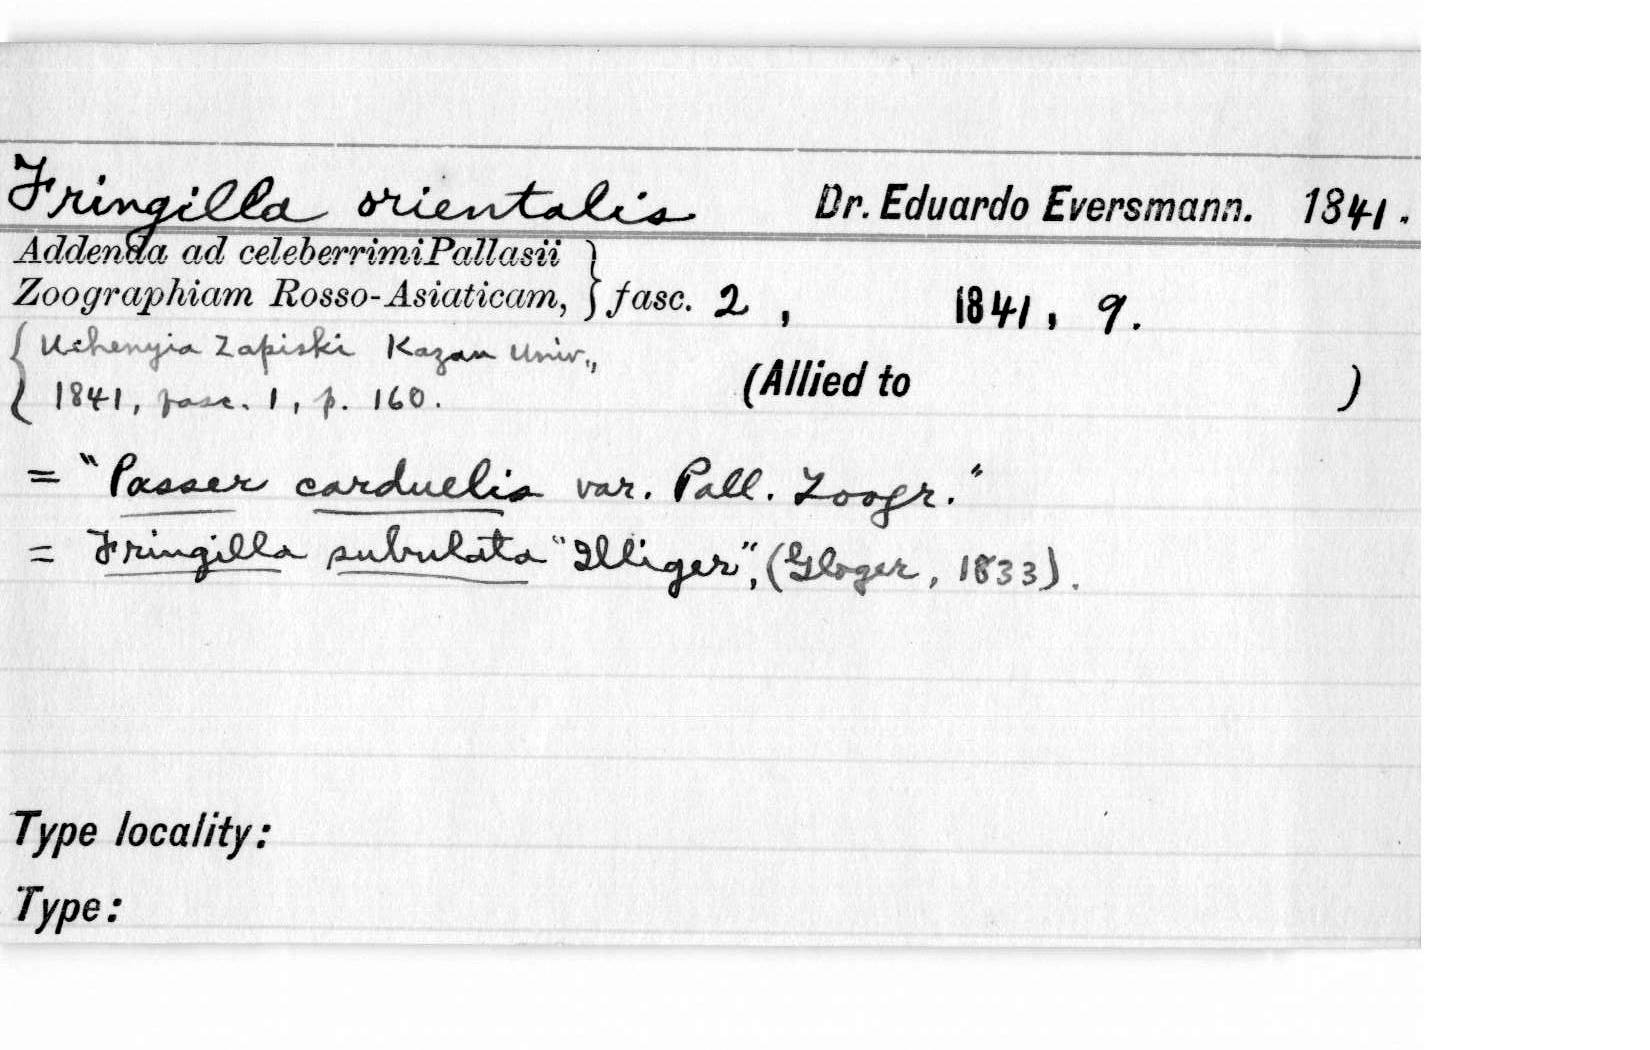 Fringilla orientalis Dr. Eduardo Eversmann. 1841.
Addenda ad celeberrimi Pallasii
Zoographiam Rosso-Asiaticam, } fasc. 2, 1841, 9.
{ Uchenyia Zapiski Kazan Univ.,
1841, fasc. 1, p. 160.
(Allied to )
= "Passer carduelis var. Pall. Zoogr."
= Fringilla subulata "Illiger", (Gloger, 1833).
Type locality:
Type: